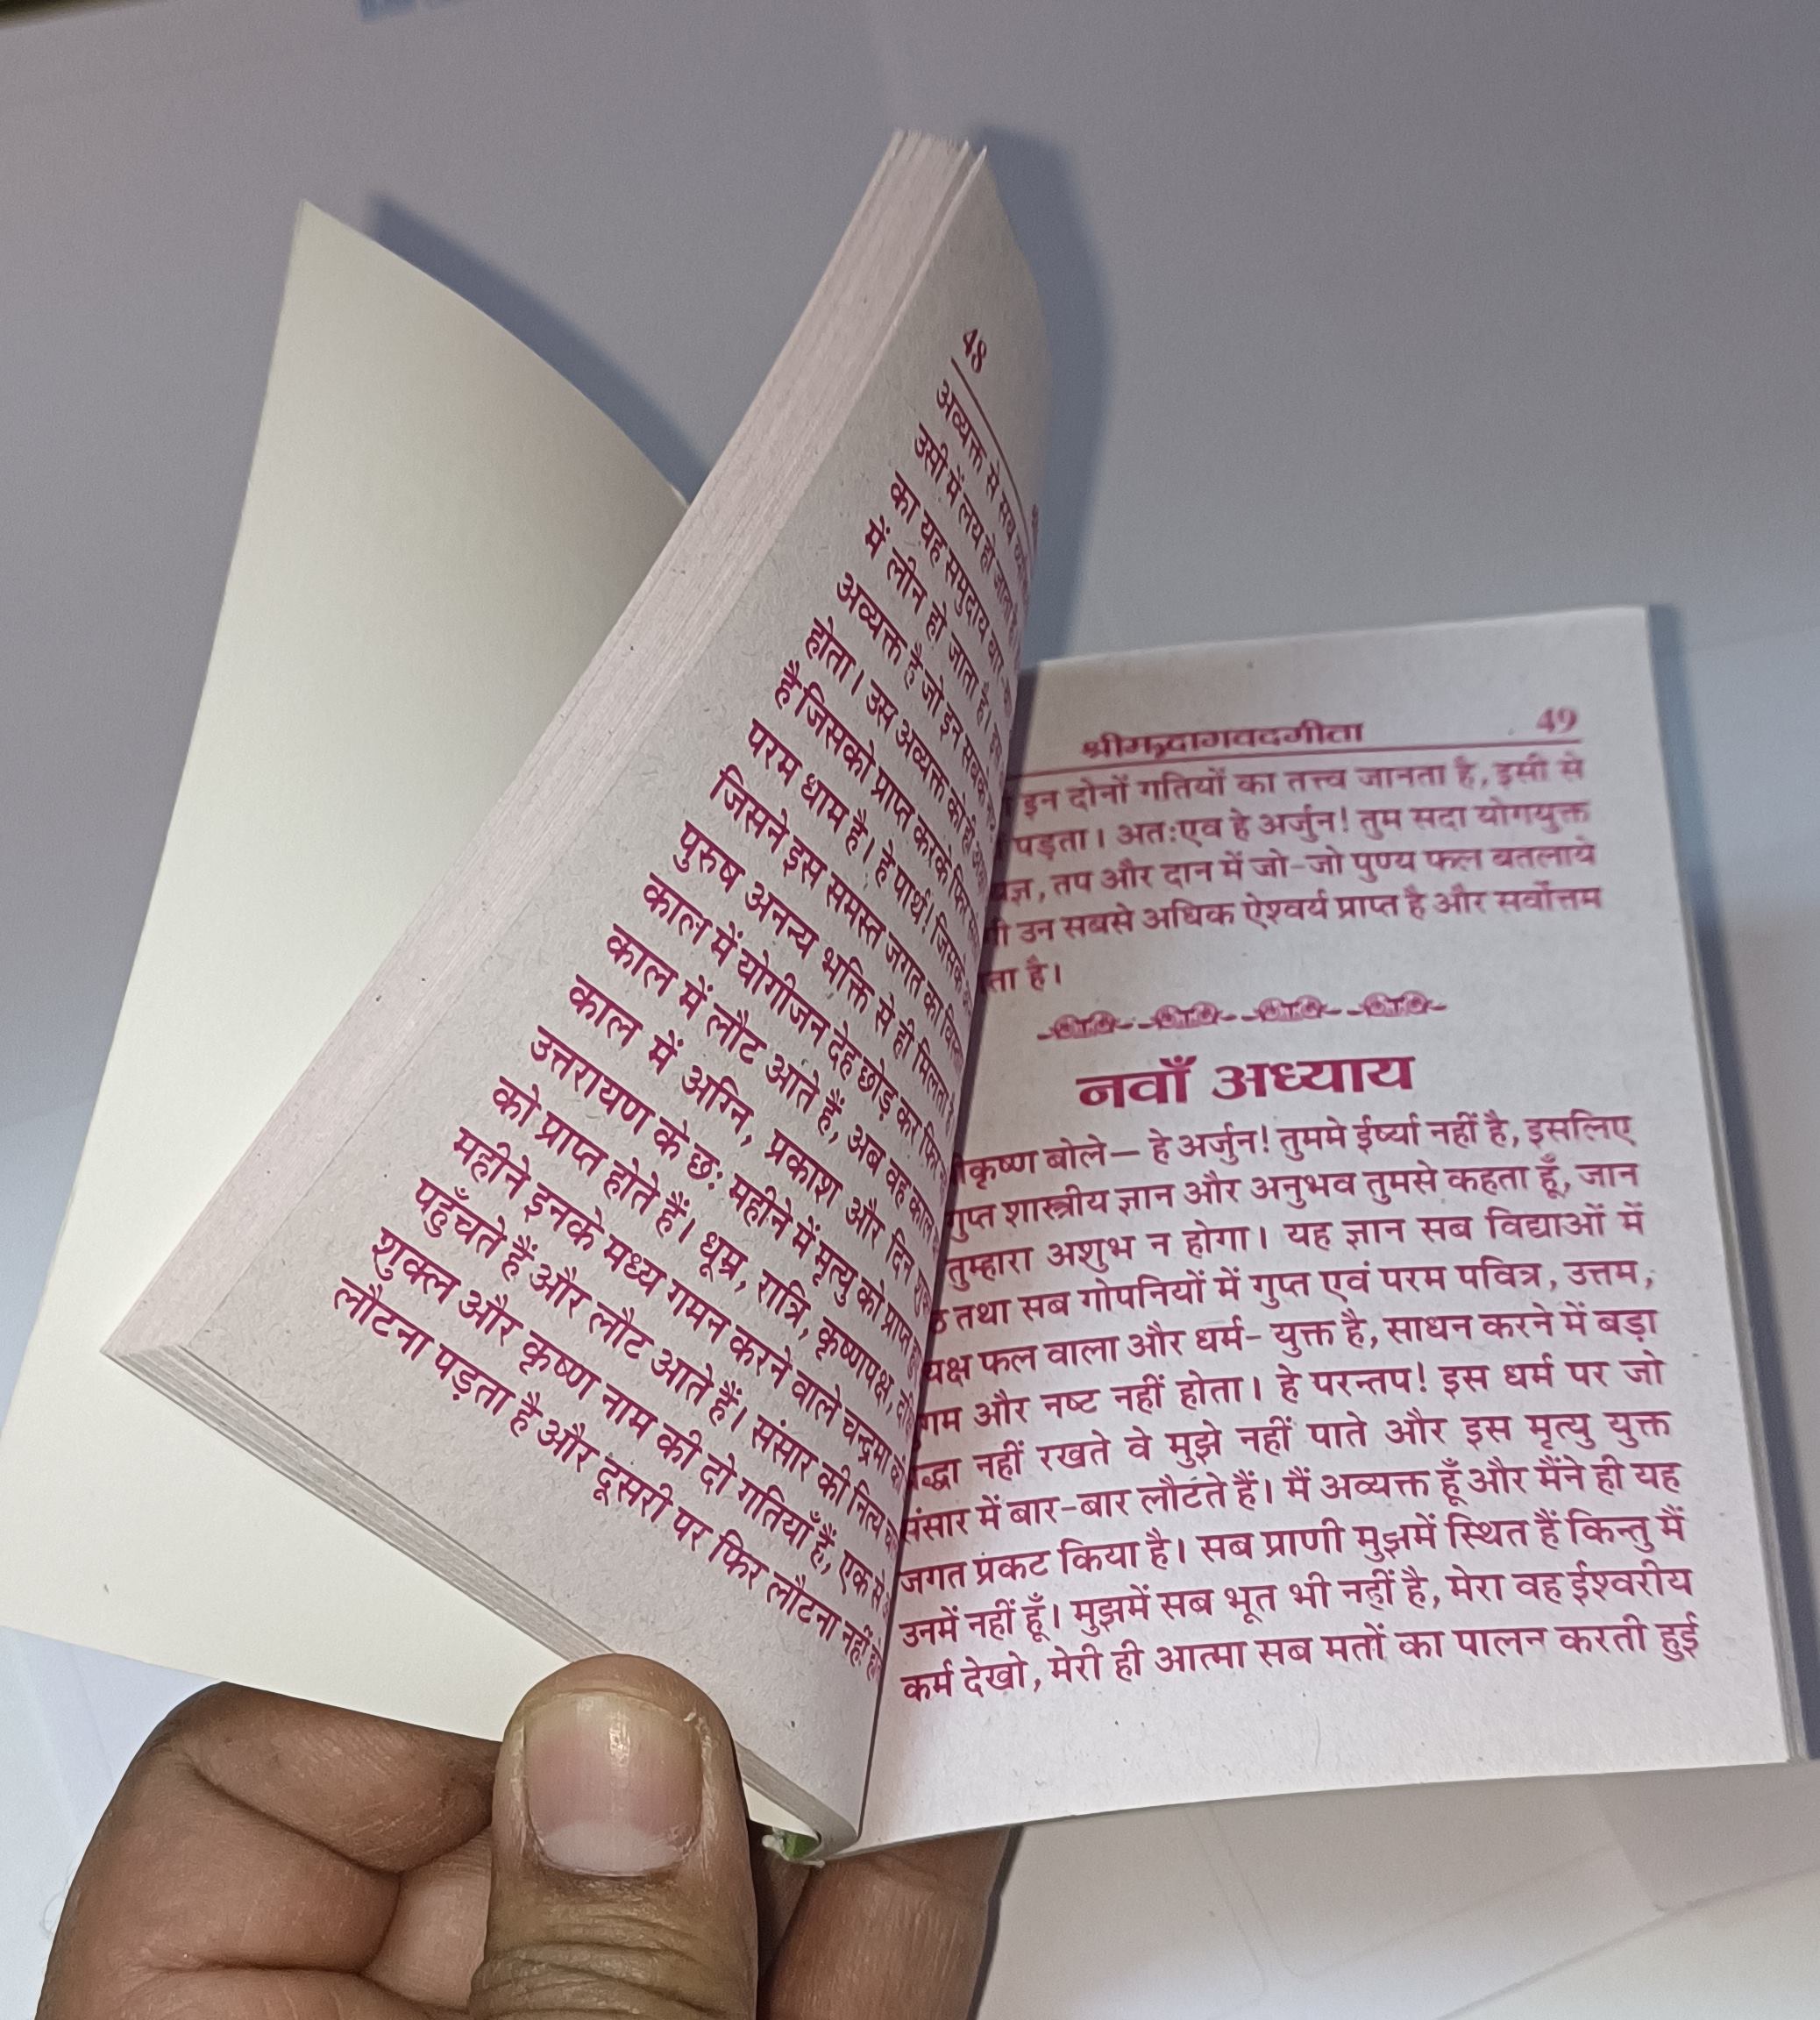 48
अव्यक्त से सब
उसी में लय हो जाता है
का यह समुदाय बार-
में लीन हो जाता है।
अव्यक्त है जो इन सबके
होता। उस अव्यक्त को ही
है जिसको प्राप्त करके फिर
परम धाम है। हे पार्थ! जिसके
जिसने इस समस्त जगत का
पुरुष अनन्य भक्ति से ही मिलता है
काल में योगीजन देह छोड़ कर फिर
काल में लौट आते हैं, अब वह काल
काल में अग्नि, प्रकाश और दिन
उत्तरायण के छः महीने में मृत्यु को प्राप्त
को प्राप्त होते हैं। धूम्र, रात्रि, कृष्णपक्ष,
महीने इनके मध्य गमन करने वाले चन्द्रमा
पहुँचते हैं और लौट आते हैं। संसार की नित्य
शुक्ल और कृष्ण नाम की दो गतियाँ हैं, एक से
लौटना पड़ता है और दूसरी पर फिर लौटना नहीं
श्रीमद्भागवदगीता 49
इन दोनों गतियों का तत्त्व जानता है, इसी से
पड़ता। अतःएव हे अर्जुन! तुम सदा योगयुक्त
तप और दान में जो-जो पुण्य फल बतलाये
उन सबसे अधिक ऐश्वर्य प्राप्त है और सर्वोत्तम
है।
नवाँ अध्याय
कृष्ण बोले— हे अर्जुन! तुममे ईर्ष्या नहीं है, इसलिए
गुप्त शास्त्रीय ज्ञान और अनुभव तुमसे कहता हूँ, जान
तुम्हारा अशुभ न होगा। यह ज्ञान सब विद्याओं में
तथा सब गोपनियों में गुप्त एवं परम पवित्र, उत्तम,
फल वाला और धर्म- युक्त है, साधन करने में बड़ा
और नष्ट नहीं होता। हे परन्तप! इस धर्म पर जो
नहीं रखते वे मुझे नहीं पाते और इस मृत्यु युक्त
संसार में बार-बार लौटते हैं। मैं अव्यक्त हूँ और मैंने ही यह
जगत प्रकट किया है। सब प्राणी मुझमें स्थित हैं किन्तु मैं
उनमें नहीं हूँ। मुझमें सब भूत भी नहीं है, मेरा वह ईश्वरीय
कर्म देखो, मेरी ही आत्मा सब मतों का पालन करती हुई